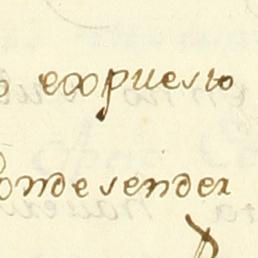 expuesto
Condesender